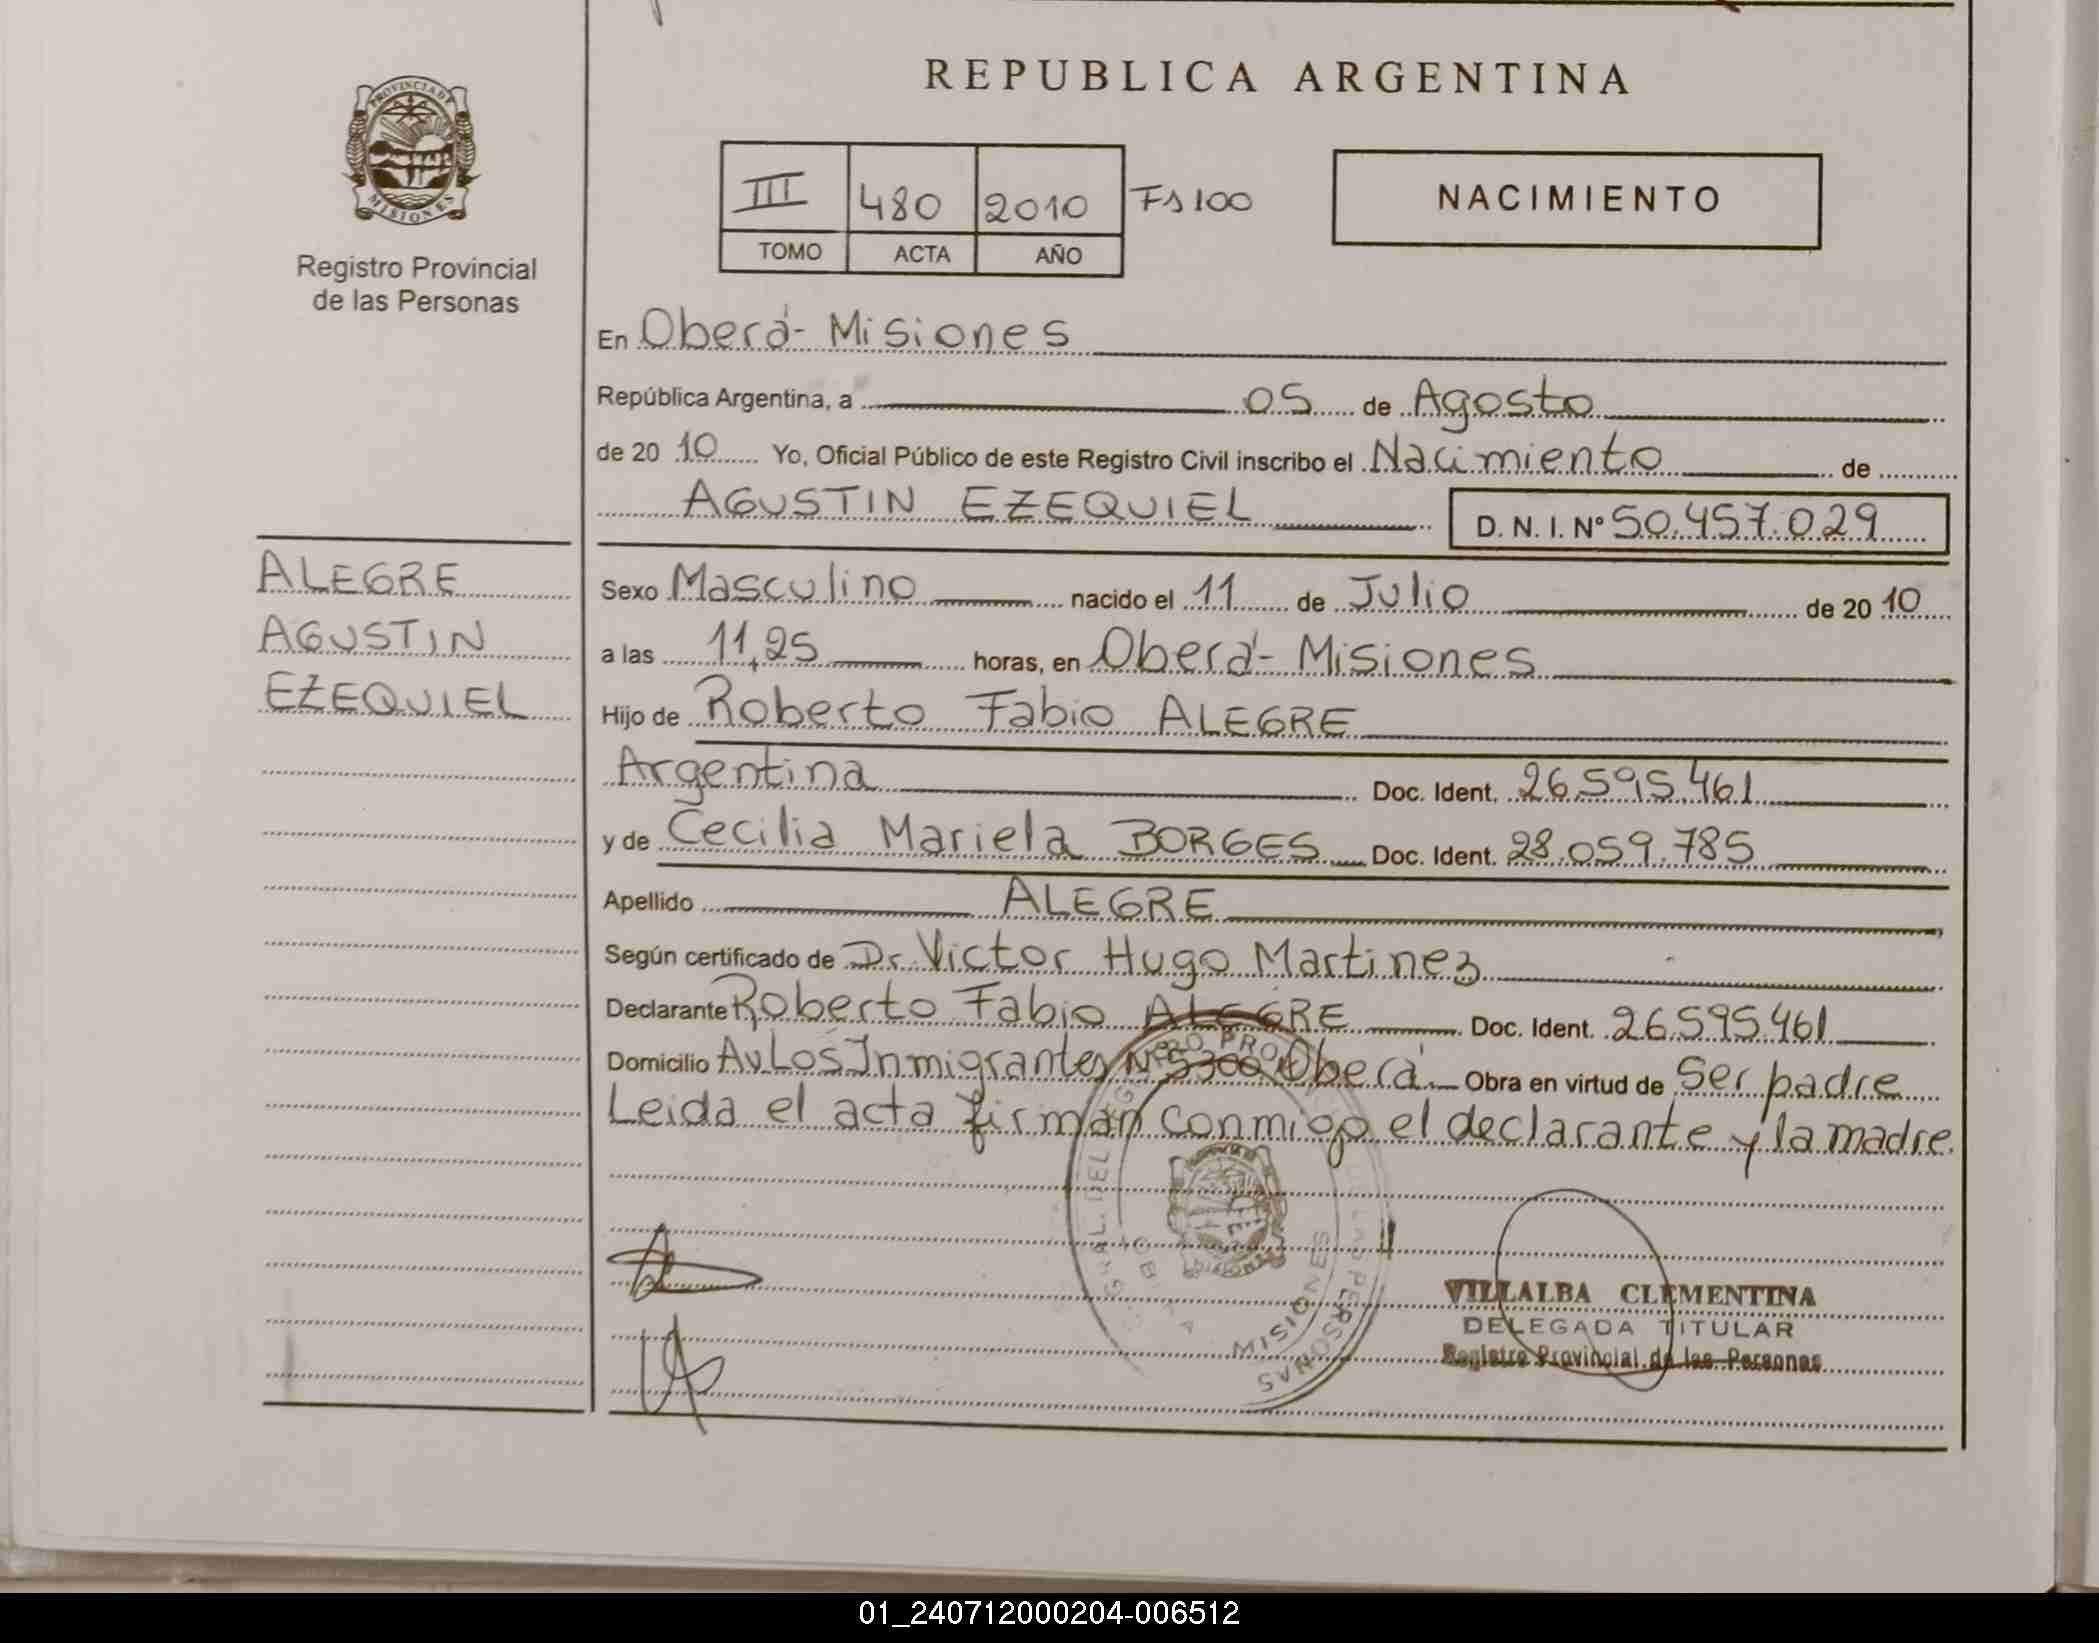 REPUBLICA ARGENTINA
PROVINCIA DE
MISIONES
Registro Provincial
de las Personas
III 480 2010 Fs 100
TOMO ACTA AÑO
NACIMIENTO
En Oberá- Misiones
República Argentina, a 05 de Agosto
de 20 10 Yo, Oficial Público de este Registro Civil inscribo el Nacimiento de
AGUSTIN EZEQUIEL D. N. I. N° 50.457.029
ALEGRE
AGUSTIN
EZEQUIEL
Sexo Masculino nacido el 11 de Julio de 20 10
a las 11,25 horas, en Oberá- Misiones
Hijo de Roberto Fabio ALEGRE
Argentina Doc. Ident. 26.595.461
y de Cecilia Mariela BORGES Doc. Ident. 28.059.785
Apellido ALEGRE
Según certificado de Dr. Victor Hugo Martinez
Declarante Roberto Fabio ALEGRE Doc. Ident. 26.595.461
Domicilio Av Los Inmigrantes N° 5300 Oberá Obra en virtud de Ser padre
Leida el acta firman conmigo el declarante y la madre.
MISIONES
VILLALBA CLEMENTINA
DELEGADA TITULAR
Registro Provincial de las Personas
01_240712000204-006512